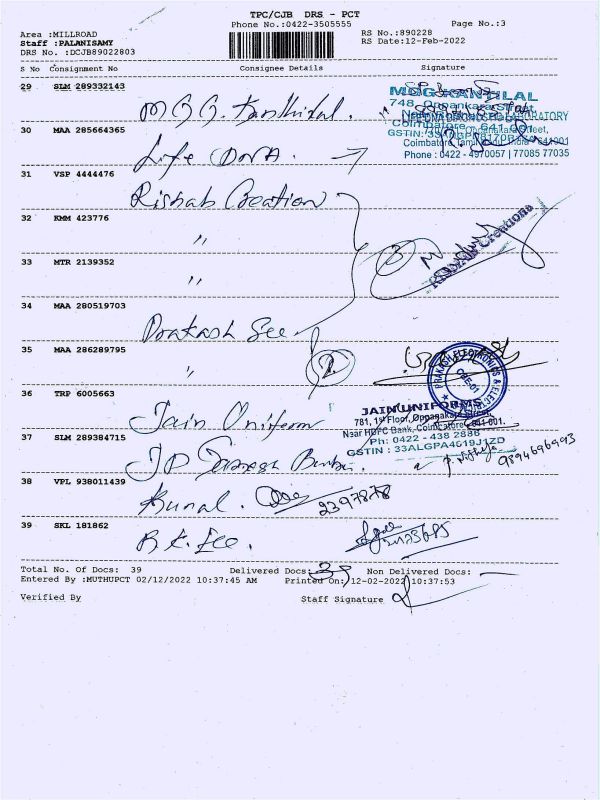 TPC/CJB DRS - PCT
Phone No.:0422-3505555
Page No.:3
Area :MILLROAD
RS No.:890228
Staff :PALANISAMY
RS Date:12-Feb-2022
DRS No. :DCJB89022803
S No Consignment No Consignee Details Signature
29 SLM 289332143
M G G. Kanthilal.
748, Oppankara Street,
30 MAA 285664365
Life DNA.
Phone : 0422 - 4970057 | 77085 77035
31 VSP 4444476
Rishab Creation
32 KMM 423776
"
Creations
33 MTR 2139352
"
34 MAA 280519703
Prakash Ele
35 MAA 286289795
"
2
PRAKASH ELECTRONICS & ELECT
CBE-01
36 TRP 6005663
Jain Uniform
JAIN UNIFORMS
781, 1st Floor, Oppanakara Street,
Near HDFC Bank, Coimbatore - 641 001.
37 SLM 289384715
Ph: 0422 - 438 2886
GSTIN : 33ALGPA4619J1ZD
9894696993
38 VPL 938011439
Kunal.
2397878
39 SKL 181862
R.K. Ele.
Total No. Of Docs: 39 Delivered Docs: 39 Non Delivered Docs:
Entered By :MUTHUPCT 02/12/2022 10:37:45 AM Printed On:/12-02-2022 10:37:53
Verified By Staff Signature